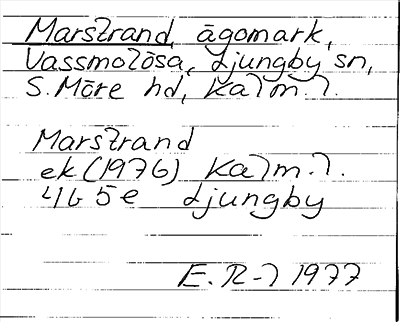 Marstrand, ägomark,
Vassmolösa, Ljungby sn,
S. Möre hd, Kalm. l.
Marstrand
ek (1976) Kalm. l.
4G 5e Ljungby
E. R-l 1977